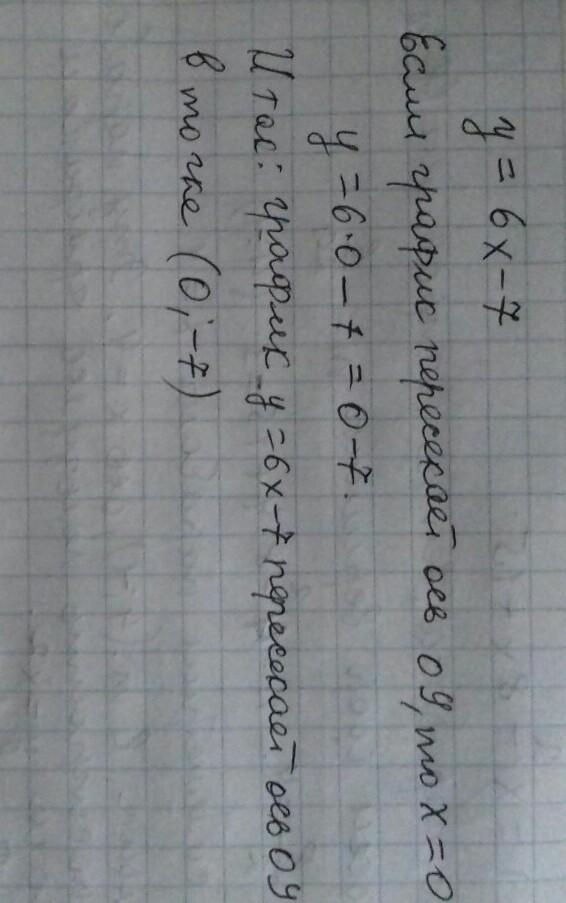 y = 6x - 7
Если график пересекает ось OY, то x = 0
y = 6·0 - 7 = 0 - 7.
Итог: график y = 6x - 7 пересекает ось OY
в точке (0; -7)